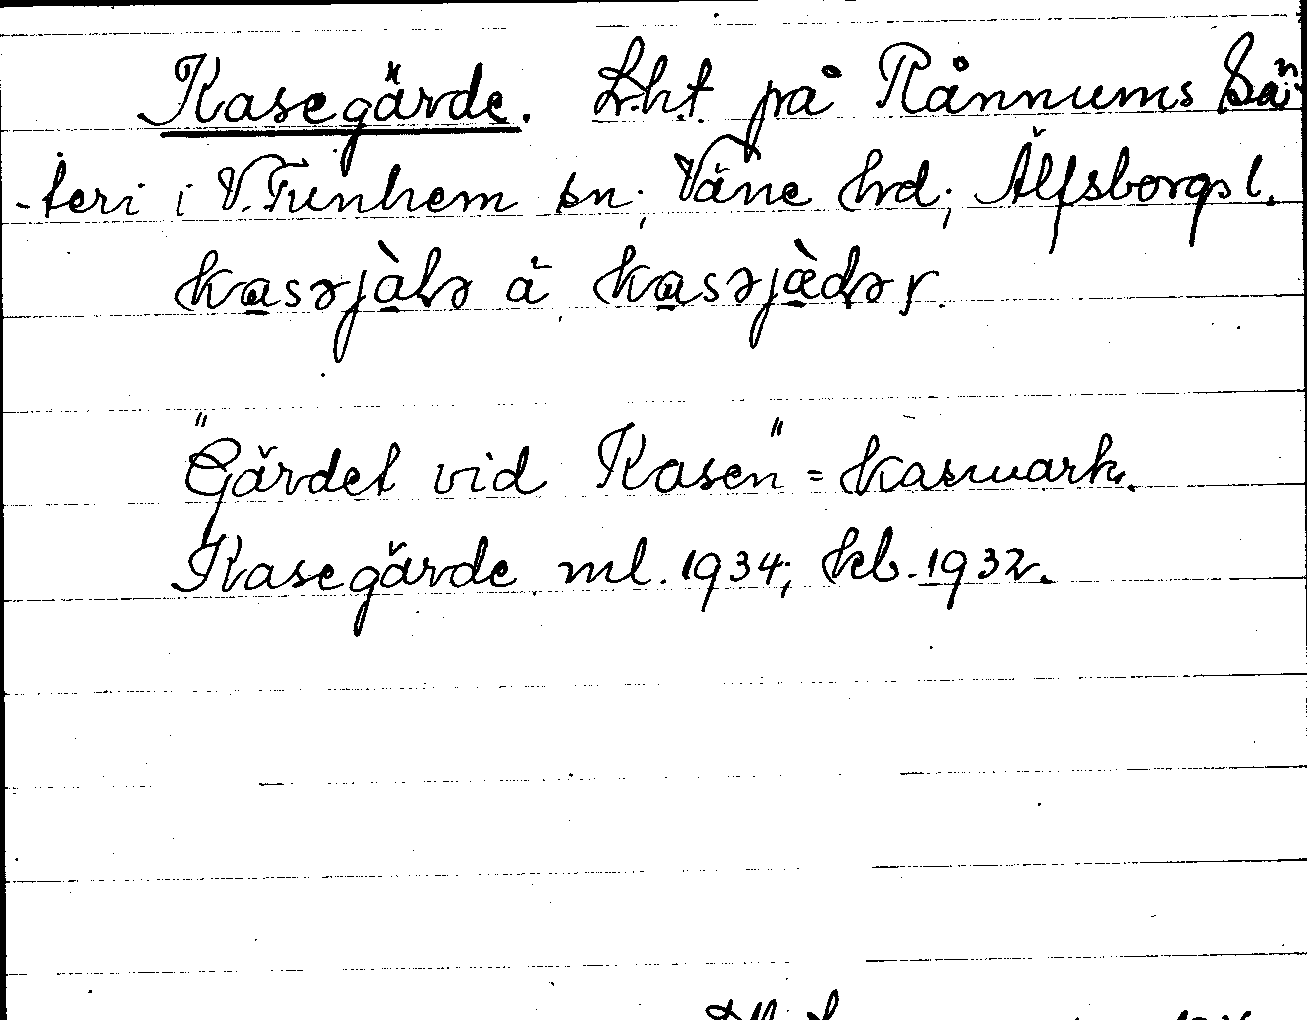 Kasegärde. L.h.t. på Rånnums Sä-
-teri i V.Tunhem sn; Väne hrd; Älfsborgs l.
"Gärdet vid Kasen" = kasmark.
Kasegärde ml. 1934; kb. 1932.